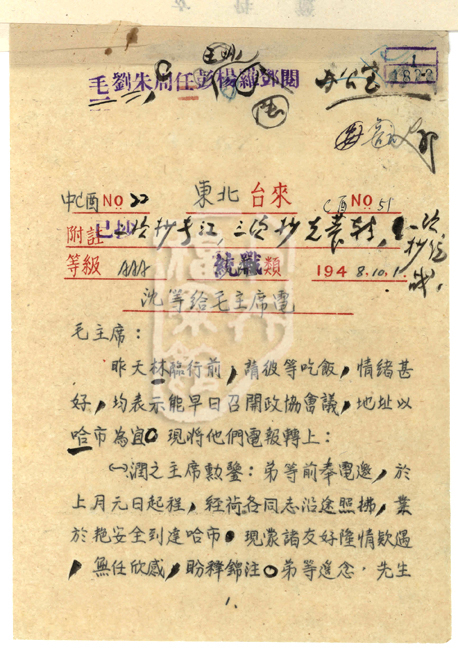 毛劉朱周任彭楊羅鄧閱
1
1823
中(酉 NO 22
東北 台來
(酉 NO 51
附註
等級 AAA
統戰類
1948.10.1
沈等給毛主席電
毛主席：
昨天林臨行前，請彼等吃飯，情緒甚
好，均表示能早日召開政協會議，地址以
哈市為宜。現將他們電報轉上：
㈠潤之主席勲鑒：弟等前奉電邀，於
上月元日起程，經荷各同志沿途照拂，業
於艳安全到達哈市。現蒙諸友好隆情欵遇
，無任欣感，盼釋錦注。弟等遙念，先生
1.